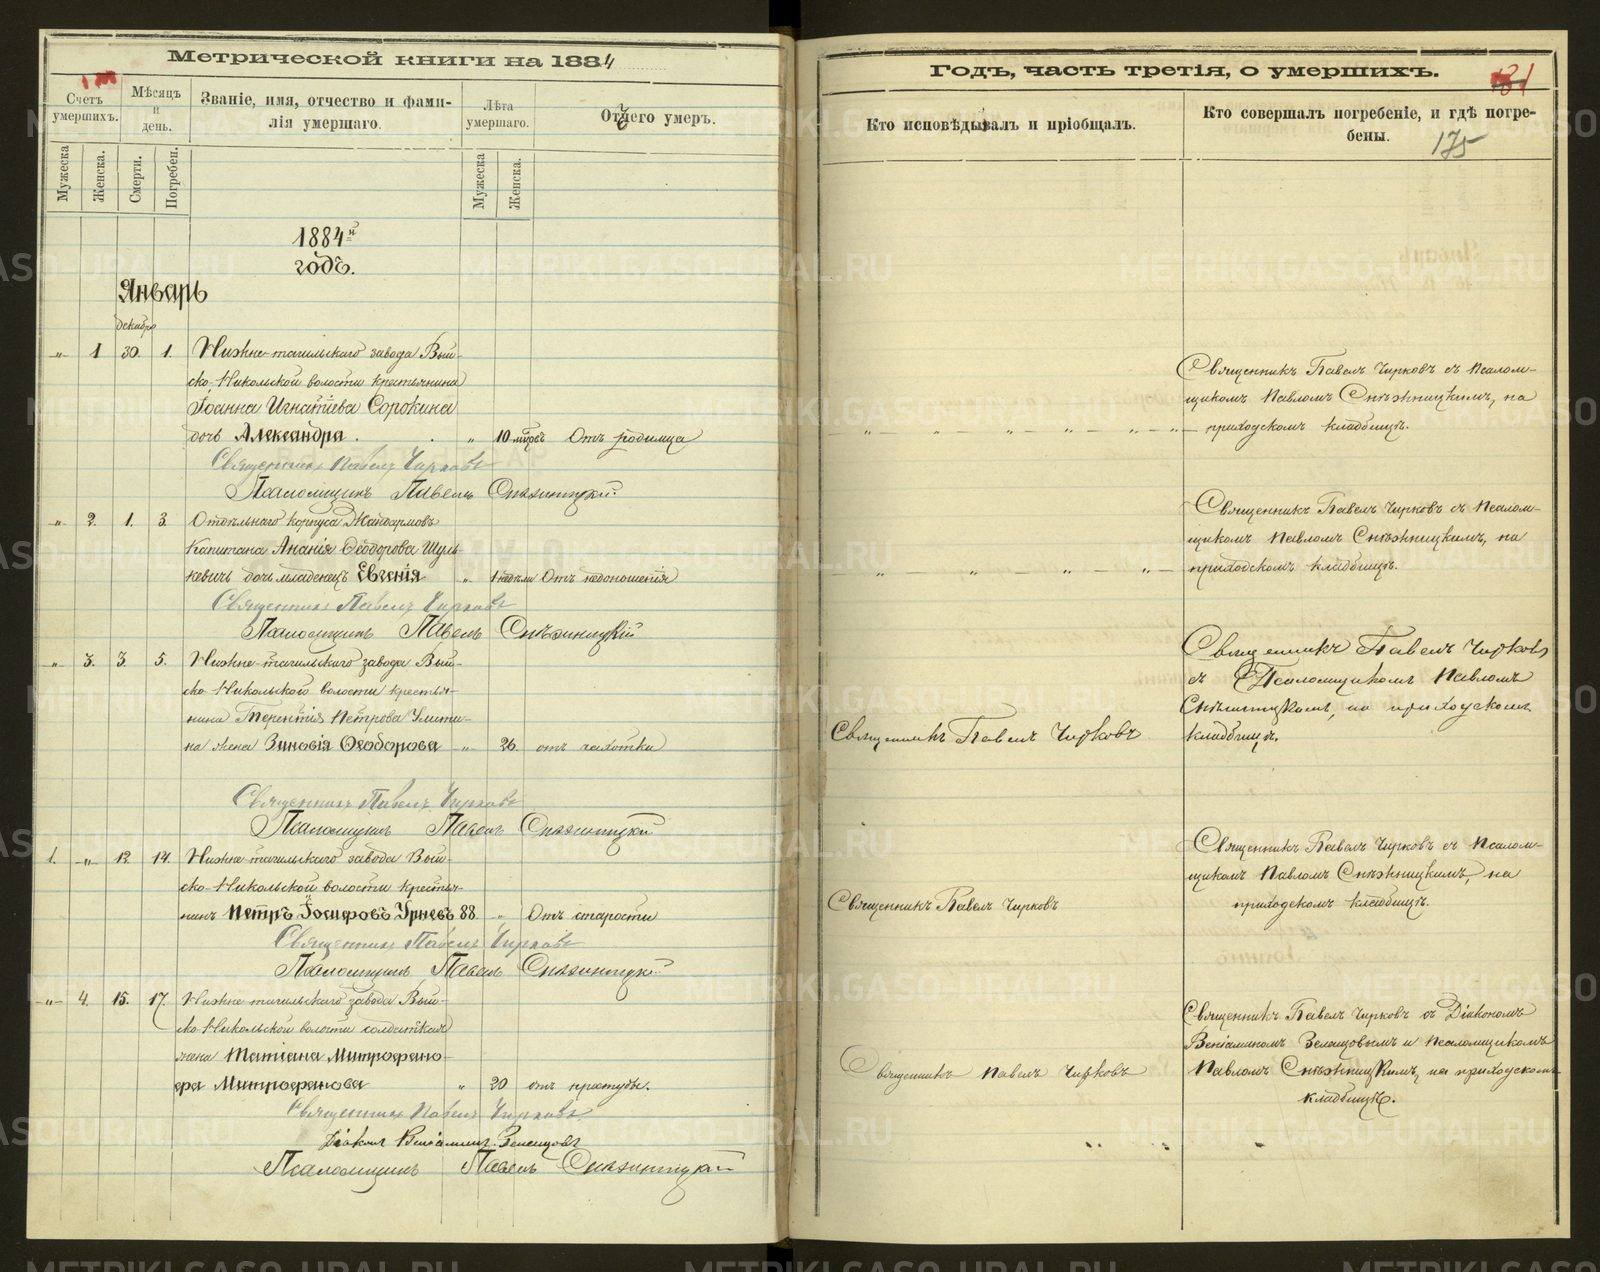 Метрической книги на 1884
Счетъ умершихъ.
Мѣсяцъ и день.
Званіе, имя, отчество и фами-
лія умершаго.
Лѣта умершаго.
Отъ чего умеръ.
Мужеска
Женска.
Смерти.
Погребен.
Мужеска
Женска.
1884й
годъ.
Январь
декабр
" 1 30. 1. Нижне-тагильскаго завода Вый-
ско-Никольской волости крестьянина
Іоанна Игнатіева Сорокина
дочь Александра . . " 10 Отъ родимца
Священникъ Павелъ Чирковъ
Псаломщикъ Павелъ Снѣжницкій
" 2. 1. 3. Отдѣльнаго корпуса Жандармовъ
Капитана Ананія Ѳеодорова Шуль-
кевичъ дочь младенецъ Евгенія " 1 недѣли Отъ недоношенія
Священникъ Павелъ Чирковъ
Псаломщикъ Павелъ Снѣжницкій
" 3. 3. 5. Нижне-тагильскаго завода Вый-
ско-Никольской волости крестья-
нина Терентія Петрова Улити-
на жена Зиновія Ѳеодорова " 26. отъ чахотки
Священникъ Павелъ Чирковъ
Псаломщикъ Павелъ Снѣжницкій
1. " 12 14. Нижне-тагильскаго завода Вый-
ско-Никольской волости крестья-
нинъ Петръ Іосифовъ 88. " Отъ старости
Священникъ Павелъ Чирковъ
Псаломщикъ Павелъ Снѣжницкій
" 4. 15. 17. Нижне тагильскаго завода Вый-
ско-Никольской волости солдатская
жена Татіана Митрофано-
Митрофанова " 20 отъ простуды.
Священникъ Павелъ Чирковъ
Діаконъ Веніаминъ
Псаломщикъ Павелъ Снѣжницкій
Годъ, часть третія, о умершихъ.
Кто исповѣдывалъ и пріобщалъ.
Кто совершалъ погребеніе, и гдѣ погре-
бены.
175
Священникъ Павелъ Чирковъ съ Псалом-
щикомъ Павломъ Снѣжницкимъ, на
приходскомъ кладбищѣ.
Священникъ Павелъ Чирковъ съ Псалом-
щикомъ Павломъ Снѣжницкимъ, на
приходскомъ кладбищѣ.
Священникъ Павелъ Чирковъ
Священникъ Павелъ Чирковъ
съ Псаломщикомъ Павломъ
Снѣжницкимъ, на приходскомъ
кладбищѣ.
Священникъ Павелъ Чирковъ
Священникъ Павелъ Чирковъ съ Псалом-
щикомъ Павломъ Снѣжницкимъ, на
приходскомъ кладбищѣ.
Священникъ Павелъ Чирковъ
Священникъ Павелъ Чирковъ съ Діакономъ
Веніаминомъ и Псаломщикомъ
Павломъ Снѣжницкимъ, на приходскомъ
кладбищѣ.
METRIKI.GASO-URAL.RU